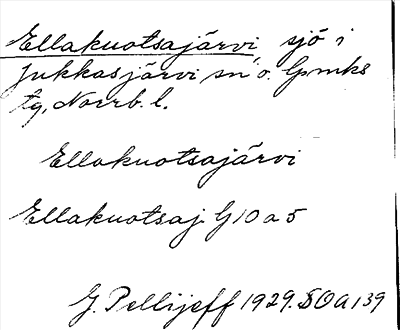 Ellakuotsajärvi, sjö i
Jukkasjärvi sn o. Lpmks
tg, Norrb. l.
Ellakuotsajärvi
Ellakuotsaj. G10a5
G. Pellijeff 1929. SOA139